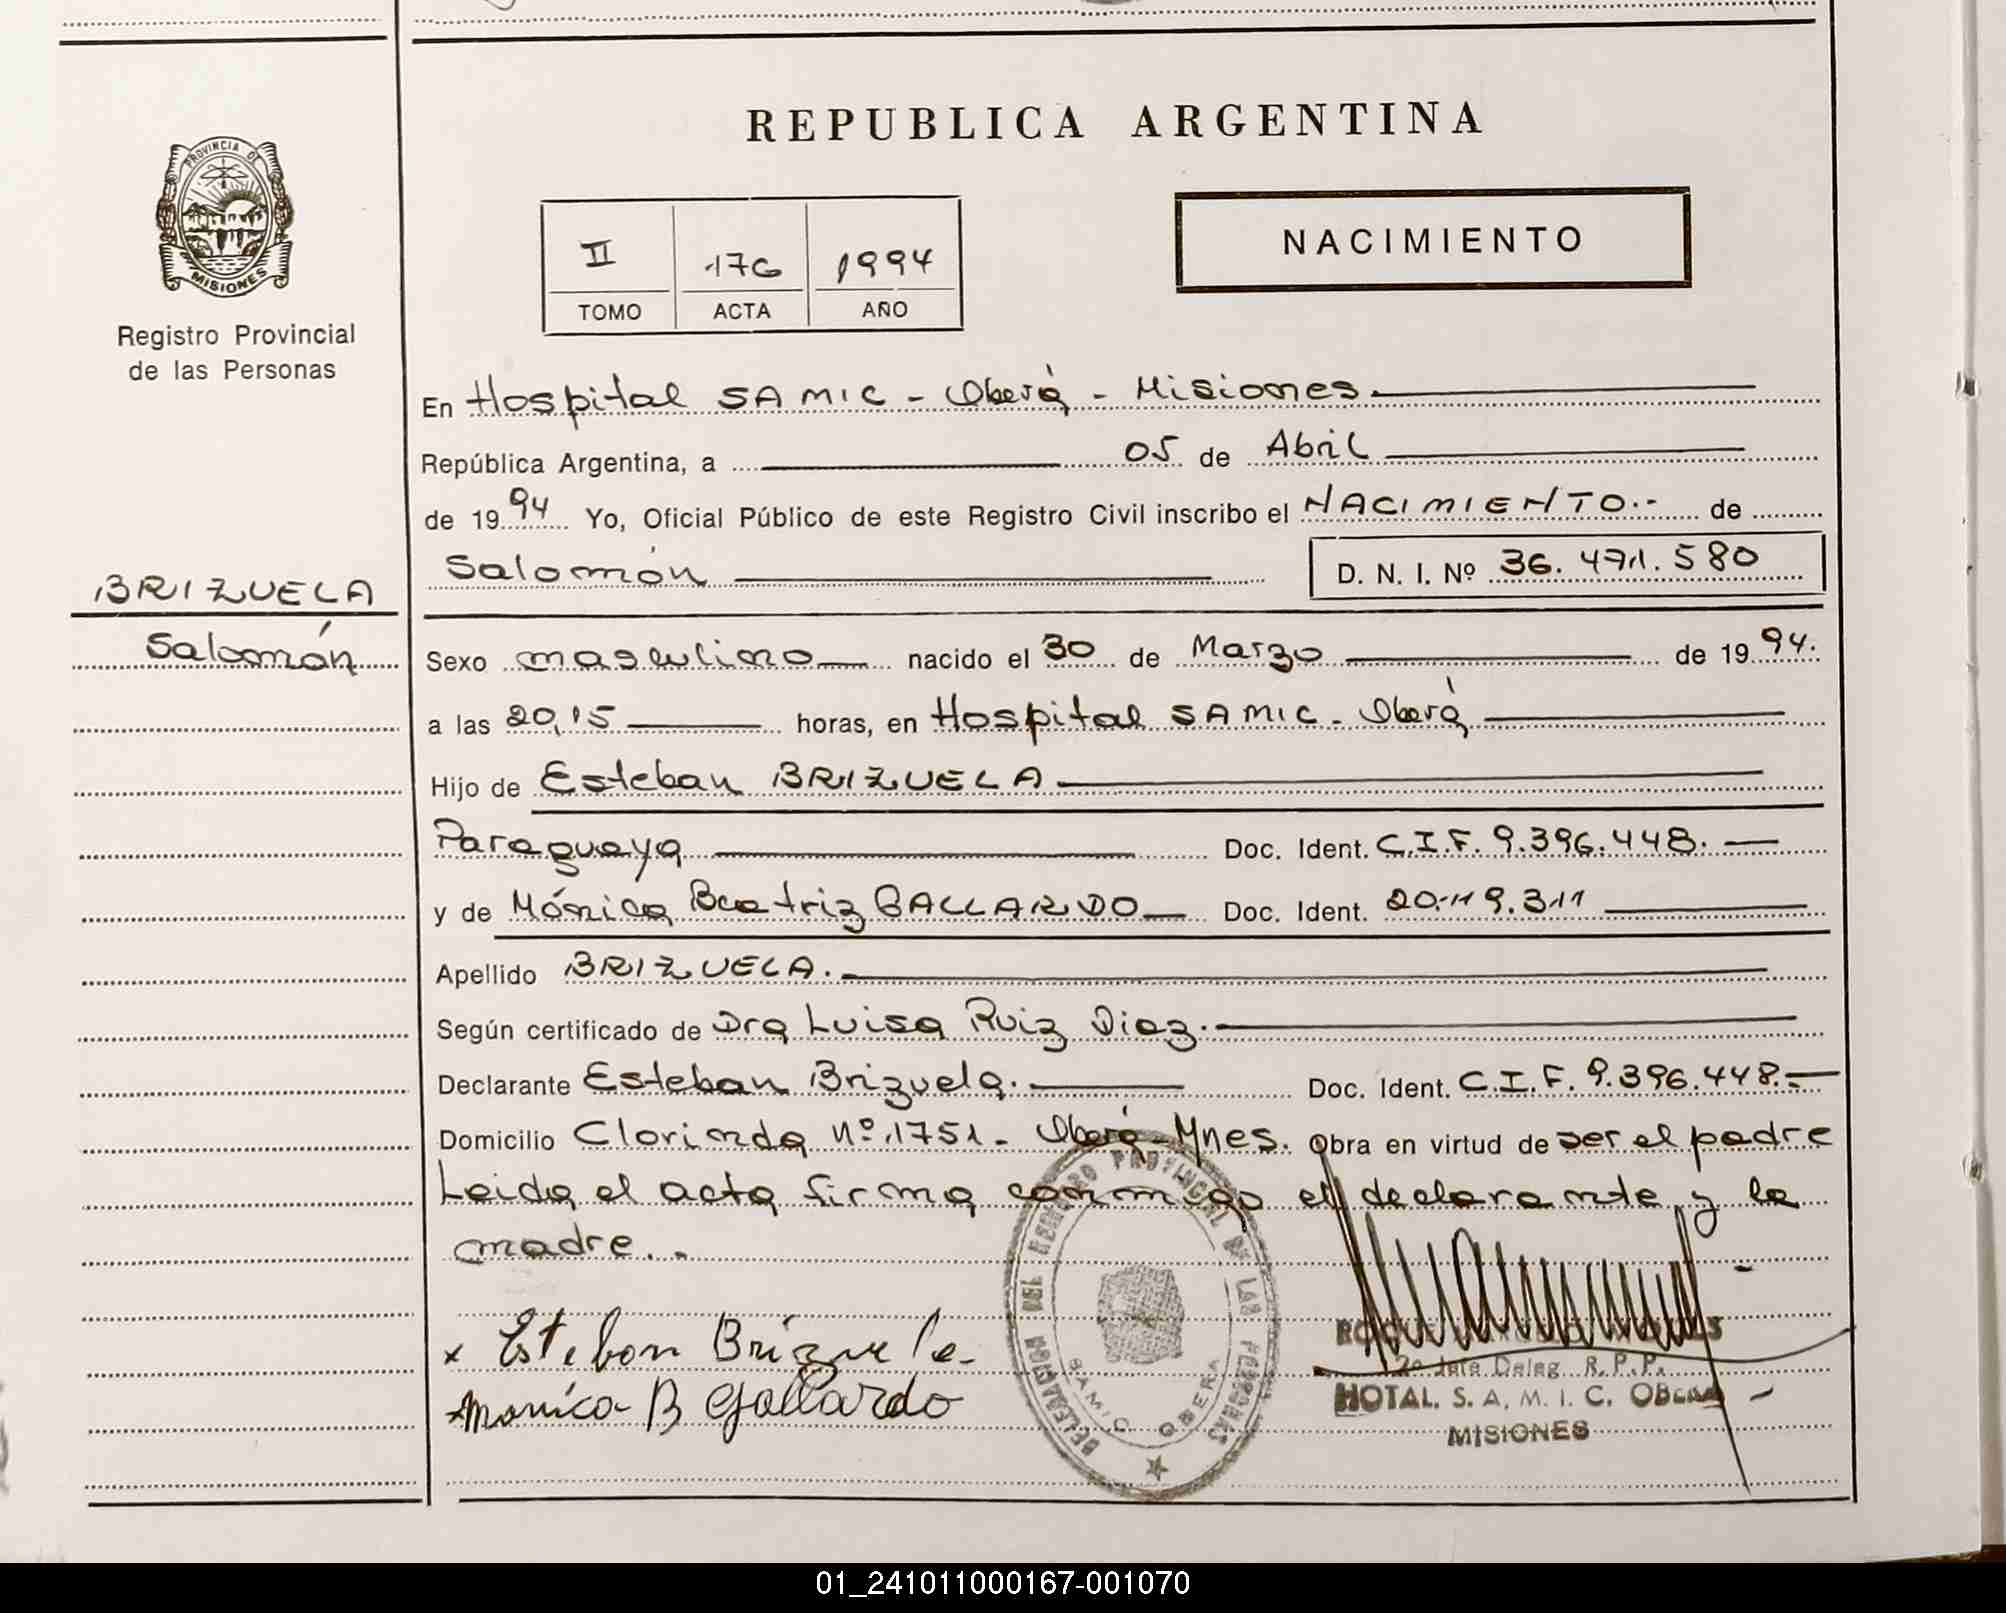 REPUBLICA ARGENTINA
PROVINCIA DE
MISIONES
Registro Provincial
de las Personas
II 176 1994
TOMO ACTA AÑO
NACIMIENTO
En Hospital SAMIC - Oberá - Misiones
República Argentina, a 05 de Abril
de 1994 Yo, Oficial Público de este Registro Civil inscribo el NACIMIENTO.- de
Salomón D. N. I. Nº 36.471.580
BRIZUELA
Salomón
Sexo masculino nacido el 30 de Marzo de 1994.
a las 20,15 horas, en Hospital SAMIC - Oberá
Hijo de Esteban BRIZUELA
Paraguaya Doc. Ident. C.I.F. 9.396.448.
y de Mónica Beatriz GALLARDO Doc. Ident. 20.119.311
Apellido BRIZUELA.
Según certificado de Dra Luisa Ruiz Diaz.
Declarante Esteban Brizuela. Doc. Ident. C.I.F. 9.396.448.-
Domicilio Clorinda Nº 1751 - Oberá - Mnes. Obra en virtud de ser el padre
Leida el acta firma conmigo el declarante y la
madre..
x Esteban Brizuela
x Monica B Gallardo
DELEGACION DEL REGISTRO PROVINCIAL DE LAS PERSONAS
SAMIC OBERA
2o Jefe Deleg. R.P.P.
HOTAL. S. A. M. I. C. OBERA
MISIONES
01_241011000167-001070